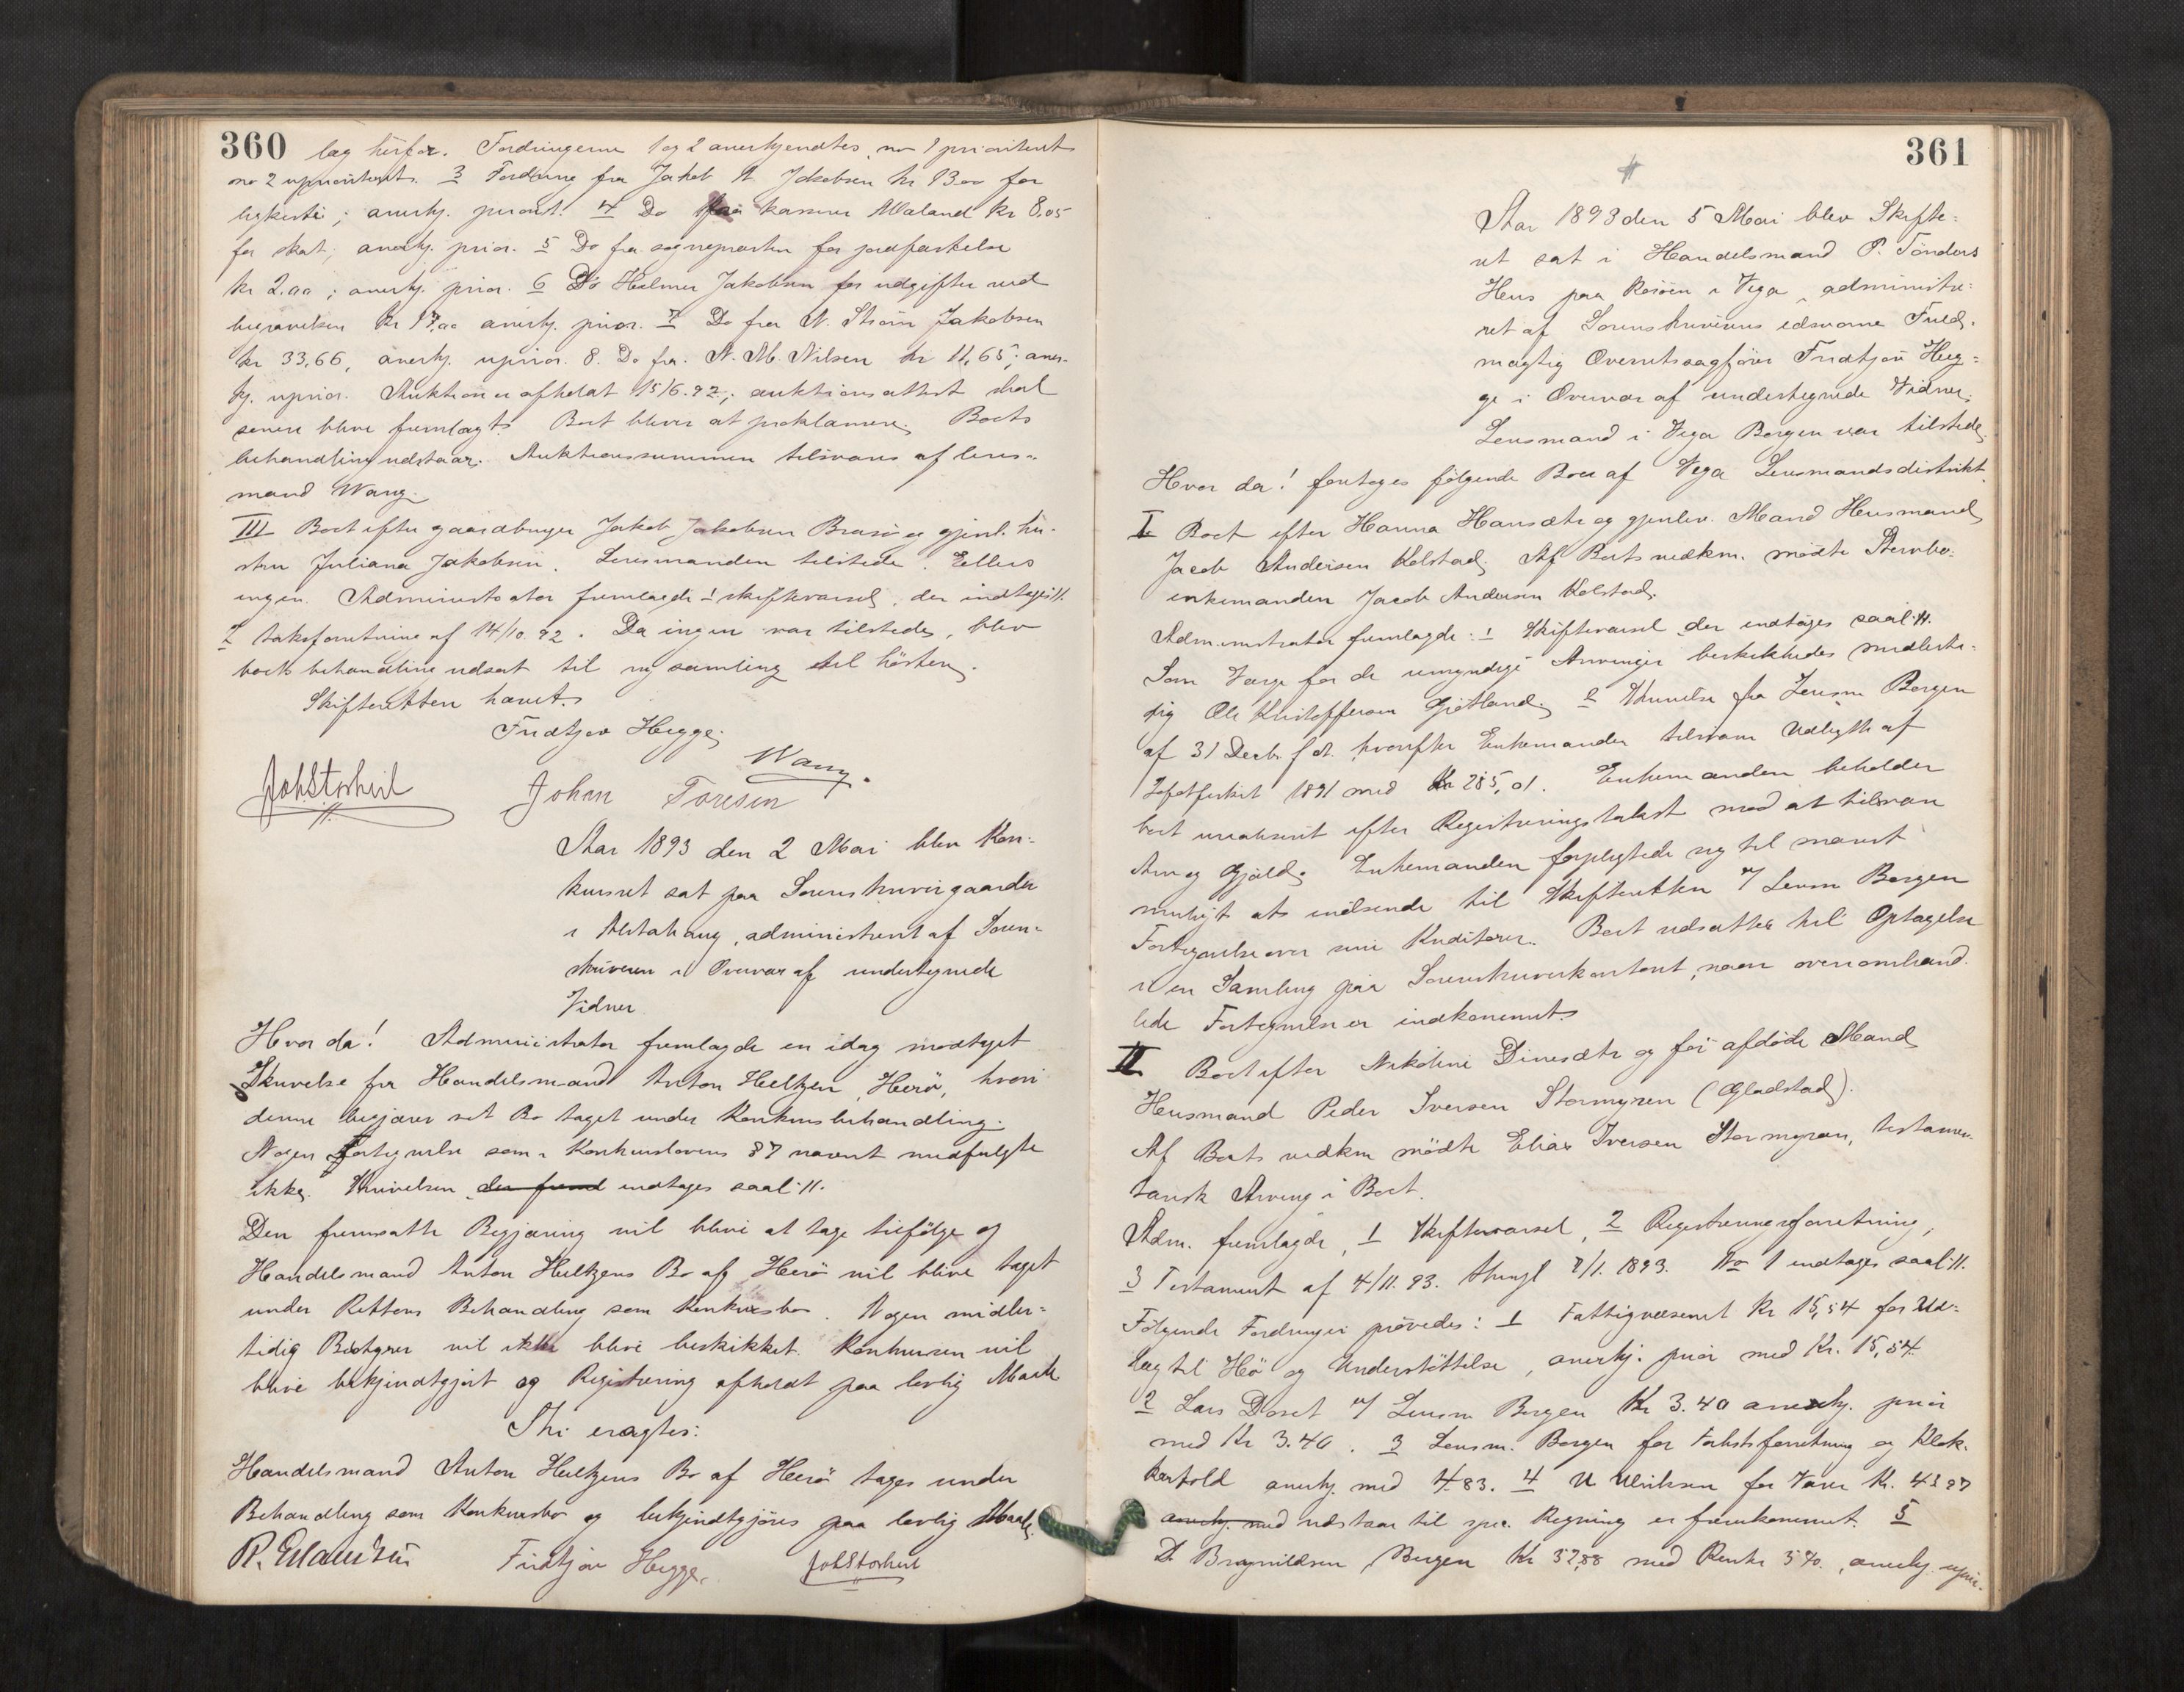 360
lag hirfor. Fordringerne 1 og 2 anerkjendtes, no 1 prioriteret
no 2 uprioriteret. 3 Fordring fra Jakob A Jakobsen kr 13.00 for
ligkiste; anerkj. priorit. 4 Do fra kasserer Waland kr 8,05
for skat; anerkj. prior. 5 Do fra sognepresten for jordfæstelse
kr 2.00; anerkj. prior. 6 Do Helmer Jakobsen for udgifter ved
begravelsen kr 17,00 anerkj. prior. 7 Do fra N. Strøm Jakobsen
kr 33,66, anerkj. uprior. 8. Do fra. N. M. Nilsen kr 11,65; aner-
kj. uprior. Auktion er afholdt 15/6.92; auktionsattest skal
senere blive fremlagt. Boet bliver at proklamere. Boets
behandling udstaar. Auktionssummen tilsvares af lens-
mand Wang.
III Boet efter gaardbruger Jakob Jakobsen Brasø og gjenl. hu-
stru Juliana Jakobsen. Lensmanden tilstede. Ellers
ingen. Administrator fremlagde 1 skiftevarsel, der indtages://.
2 taksforretning af 14/10.92. Da ingen var tilstede, blev
boets behandling udsat til ny samling til høsten.
Skifteretten hævet.
Fridtjov Hegge.
Wang.
Joh Storheil
Johan Toresen
Aar 1893 den 2 Mai blev Kon-
kursret sat paa Sorenskrivergaarden
i Alstahaug, administreret af Soren-
skriveren i Overvær af undertegnede
Vidner
Hvor da! Administrator fremlagde en idag modtaget
Skrivelse fra Handelsmand Anton Heltzen, Herø, hvori
denne begjærer sit Bo taget under Konkursbehandling.
Nogen Fortegnelse som i Konkurslovens §7 nævnt medfulgte
ikke. Skrivelsen der frem indtages saal://.
Den fremsatte Begjæring vil blive at tage tilfølge og
Handelsmand Anton Heltzens Bo af Herø vil blive taget
under Rettens Behandling som Konkursbo. Nogen midler-
tidig Bestyrer vil ikke blive beskikket. Konkursen vil
blive bekjendtgjort og Registrering afholdt paa lovlig Maade
Thi eragtes:
Handelsmand Anton Heltzens Bo af Herø tages under
Behandling som Konkursbo og bekjendtgjøres paa lovlig Maade.
Fridtjov Hegge.
Joh Storheil
361
Aar 1893 den 5 Mai blev Skifte-
ret sat i Handelsmand P. Tönders
Hus paa Rørøen i Vega, administre-
ret af Sorenskriverens edsvorne Fuld-
mægtig Overretssagfører Fridtjov Heg-
ge i Overvær af undertegnede Vidner.
Lensmand i Vega Borgen var tilstede.
Hvor da! foretoges følgende Boer af Vega Lensmandsdistrikt.
I Boet efter Hanna Hansdtr og gjenlev. Mand Husmand
Jacob Andersen Kolstad. Af Boets vedkm. mødte Stervbo-
enkemanden Jacob Andersen Kolstad.
Administrator fremlagde: 1 Skiftevarsel der indtages saal://.
Som Værge for de umyndige Arvinger beskikkedes midlerti-
dig Ole Kristoffersen Grøtland. 2 Skrivelse fra Lensm Borgen
af 31 Decbr f A. hvorefter Enkemanden tilsvarer Udbytte af
Lofotfisket 1891 med Kr 285,01. Enkemanden beholder
boet urealiseret efter Registreringstakst mod at tilsvare
Arv og Gjæld. Enkemanden forpligtede sig til snarest
muligt at indsende til Skifteretten v/ Lensm Borgen
Fortegnelse over sine Kreditorer. Boet udsattes til Optagelse
i en Samling paa Sorenskriverkontoret, naar ovenomhand-
lede Fortegnelse er indkommet.
II Boet efter Nikoline Dinesdtr og før afdøde Mand
Husmand Peder Iversen Stormyren (Gladstad).
Af Boets vedkm mødte Elias Iversen Stormyren, testamen-
tarisk Arving i Boet.
Adm. fremlagde, 1 Skiftevarsel, 2 Registreringsforretning,
3 Testament af 4/11.93. thingl 7/1. 1893. No 1 indtages saal://.
Følgende Fordringer prøvedes: 1 Fattigvæsenet Kr 15,54 for Ud-
læg til Hø og Understøttelse, anerkj. prior med Kr. 15,54.
2 Lars Doset v/ Lensm Borgen Kr 3.40 anerkj. prior
med Kr 3.40. 3 Lensm. Borgen for Takstforretning og Klok-
kerhold anerkj. med 4.83. 4 U Ulriksen for Varer Kr. 43 97
anerkj. med udstaar til spec. Regning er fremkommet. 5
D. Brynildsen, Bergen Kr 3288 med Rente 5%, anerkj. uprior.